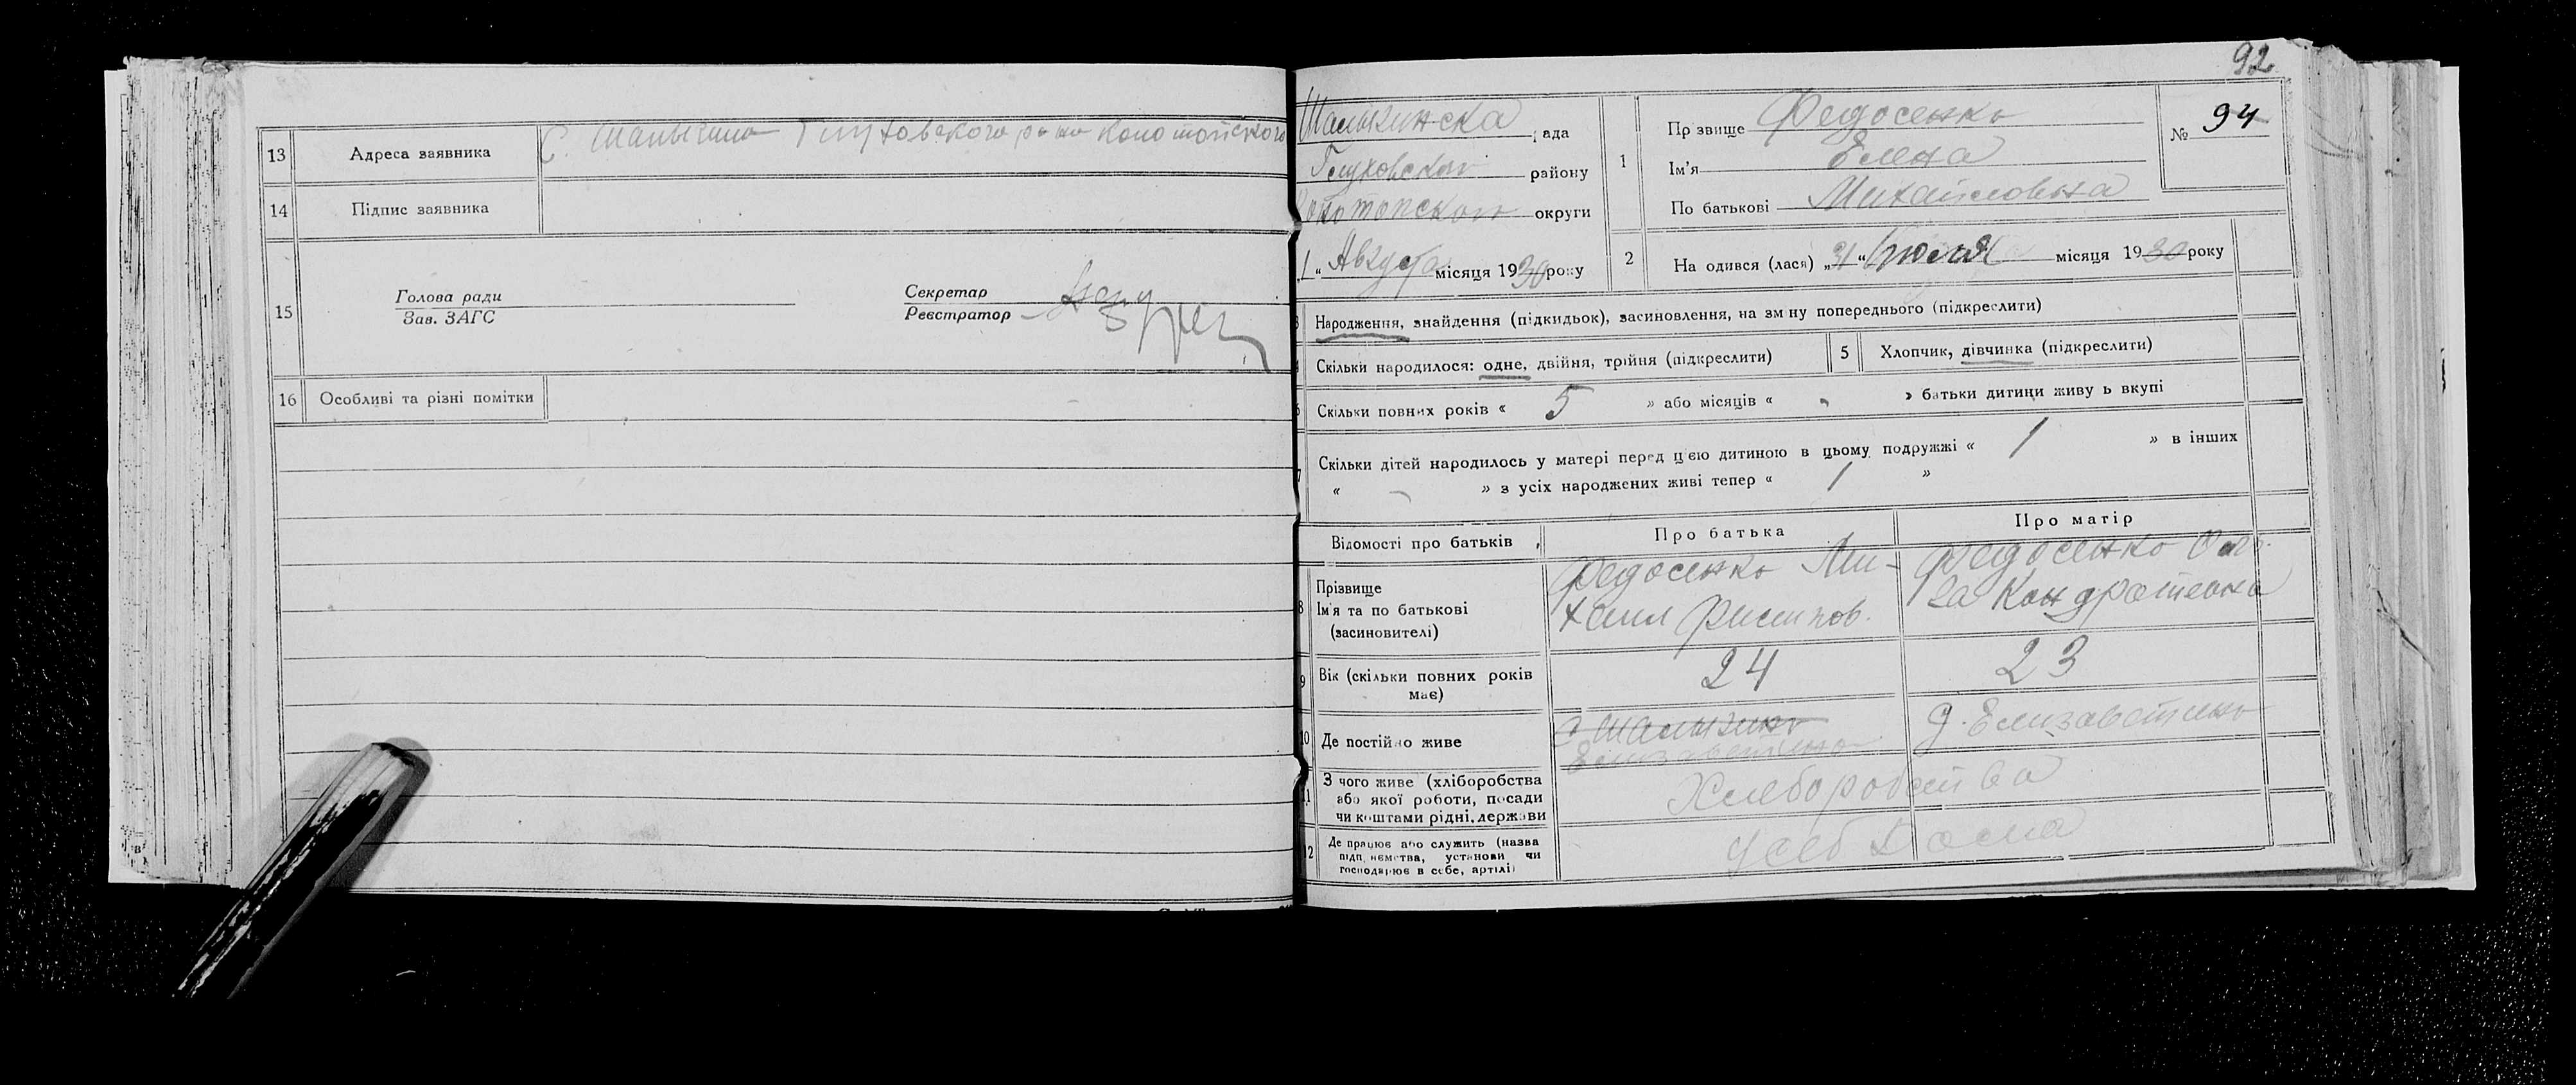 13 Адреса заявника С. Шалыгино Глуховского р-на Конотопского
14 Підпис заявника
15 Голова ради
Зав. ЗАГС
Секретар
Реєстратор
16 Особливі та різні помітки
92
Шалыгинска рада
Глуховского району
Конотопского округи
1 " Августа місяця 1930 року
1 Прізвище Федосенко
Ім'я Елена
По батькові Михайловна
№ 94
2 На одився (лася) „31" Июля місяця 1930 року
3 Народження, знайдення (підкидьок), засиновлення, на зміну попереднього (підкреслити)
4 Скільки народилося: одне, двійня, трійня (підкреслити)
5 Хлопчик, дівчинка (підкреслити)
6 Скільки повних років « 5 » або місяців « - » батьки дитини живу ь вкупі
7 Скільки дітей народилось у матері перед цією дитиною в цьому подружжі « 1 » в інших
« - » з усіх народжених живі тепер « 1 »
Відомості про батьків
Про батька
Про матір
8 Прізвище
Ім'я та по батькові
(засиновителі)
Федосенко Ми-
хаил Филипов.
Федосенко Оль-
га Кондратевна
9 Вік (скільки повних років
має)
24
23
10 Де постійно живе
с Шалыгино
Елизаветино
д. Елизаветино
11 З чого живе (хліборобства
або якої роботи, посади
чи коштами рідні, держави
Хлеборобства
12 Де працює або служить (назва
підприємства, установи чи
господарює в себе, артілі)
у себ Дома